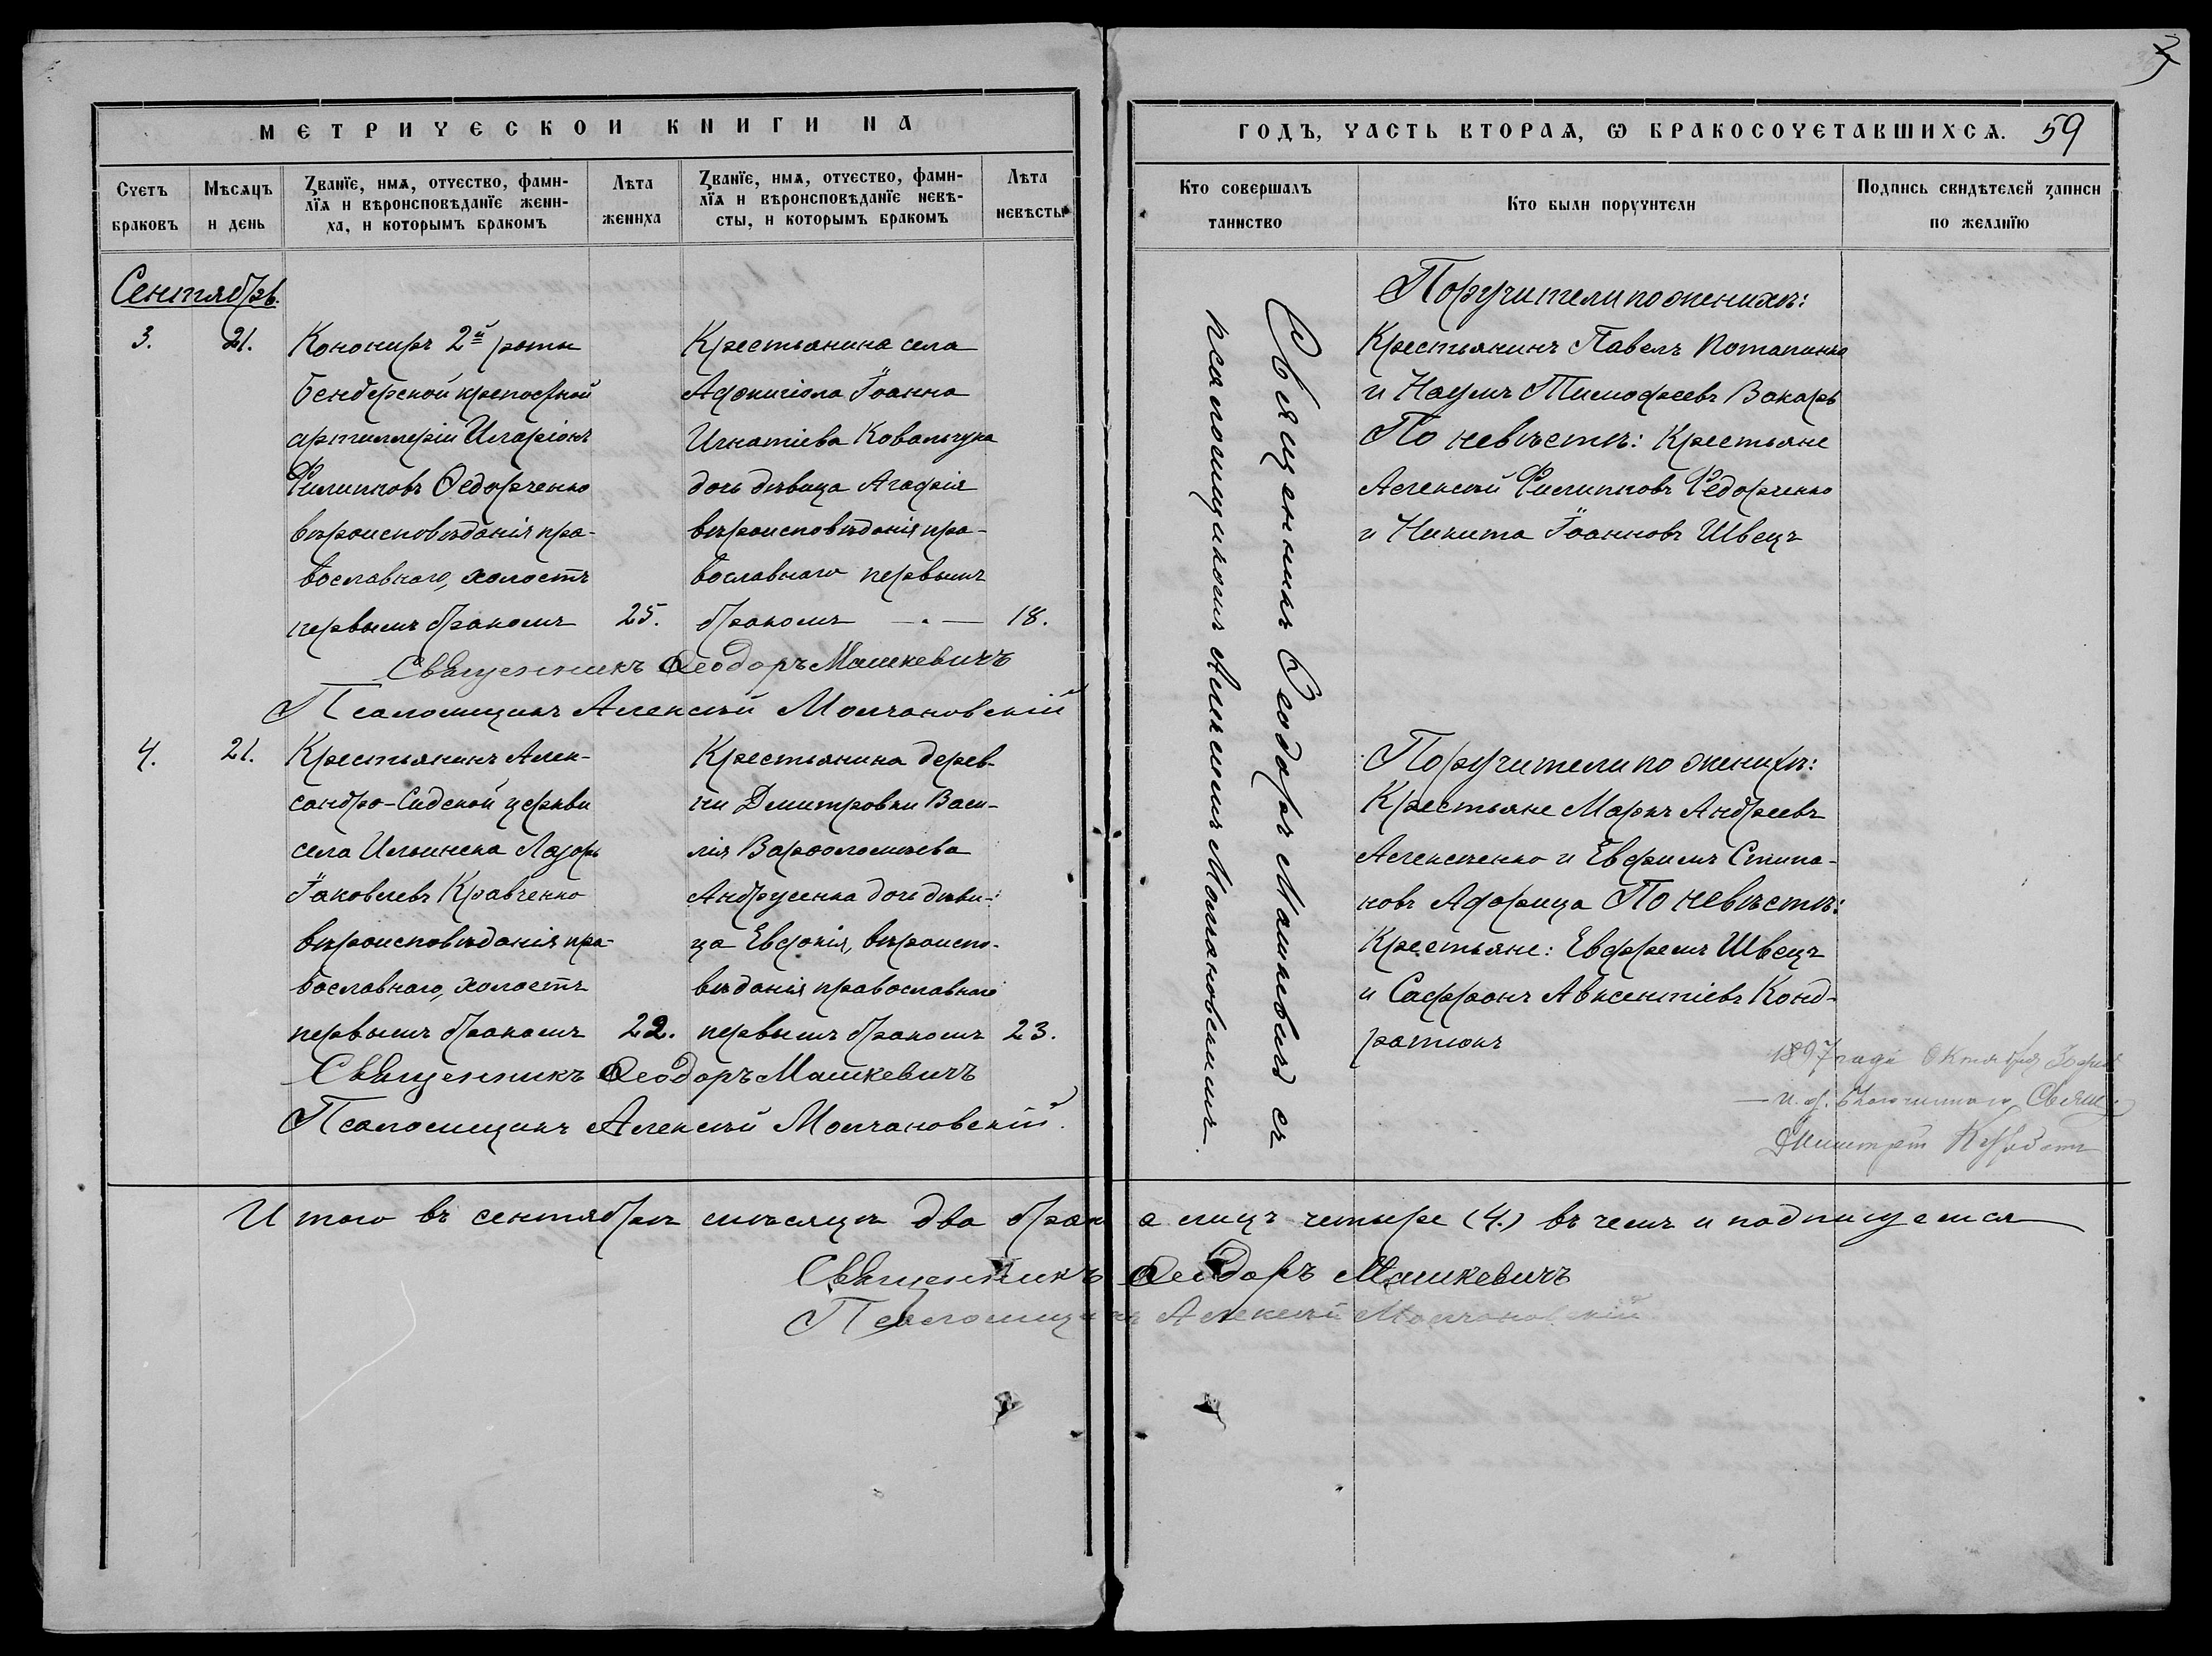 МЕТРИЧЕСКОЙ КНИГИ НА
Счетъ браковъ
Мѣсяцъ и день
Званїе, имя, отчество, фамилїя и вѣроисповѣданїе жениха, и которымъ бракомъ
Лѣта жениха
Званїе, имя, отчество, фамилїя и вѣроисповѣданїе невѣсты, и которымъ бракомъ
Лѣта невѣсты
Сентябрь.
3. 21.
Кононирь 2й роты
Бендерской крепостной
артиллеріи Иларіонъ
Филипповъ Ѳедорченко
вѣроисповѣданія пра-
вославнаго, холостъ
первымъ бракомъ 25.
Крестьянина села
Ефонигіола Іоанна
Игнатіева Ковальчука
дочь дѣвица Агафія
вѣроисповѣданія пра-
вославнаго первымъ
бракомъ —.— 18.
Священникъ Ѳеодоръ Машкевичъ
Псаломщикъ Алексѣй Молчановскій
4. 21.
Крестьянинъ Алек-
сандро-Сидской церкви
села Ильинска Лазорь
Іаковлевъ Кравченко
вѣроисповѣданія пра-
вославнаго, холостъ
первымъ бракомъ 22.
Крестьянина дерев-
ни Дмитровки Васи-
лія Варѳоломѣева
Андрусенка дочь дѣви-
ца Евдокія, вѣроиспо-
вѣданія православнаго
первымъ бракомъ 23.
Священникъ Ѳеодоръ Машкевичъ
Псаломщикъ Алексѣй Молчановскій.
ГОДЪ, ЧАСТЬ ВТОРАЯ, Ѡ БРАКОСОЧЕТАВШИХСЯ. 59
Кто совершалъ таинство
Кто были поручители
Подпись свидѣтелей записи по желанїю
Священникъ Ѳеодоръ Машкевичъ съ
псаломщикомъ Алексѣемъ Молчановскимъ.
Поручители по женихѣ:
Крестьянинъ Павелъ Потапинко
и Наумъ Тимофеевъ Вакарь
По невѣстѣ: Крестьяне
Алексѣй Филипповъ Федорченко
и Никита Іоанновъ Швецъ
Поручители по женихѣ:
Крестьяне Маркъ Андреевъ
Алексѣенко и Евфимъ Стипа-
новъ По невѣстѣ:
Крестьяне: Евфремъ Швецъ
и Сафронъ Авксентіевъ Конд-
ратюкъ
1897 года Октября
и. д. Благочиннаго Свящ.
Дмитрій
Итого въ сентябрѣ мѣсяцѣ два брака лицъ четыре (4.) въ чемъ и подпишемся
Священникъ Ѳеодоръ Машкевичъ
Псаломщикъ Алексѣй Молчановскій